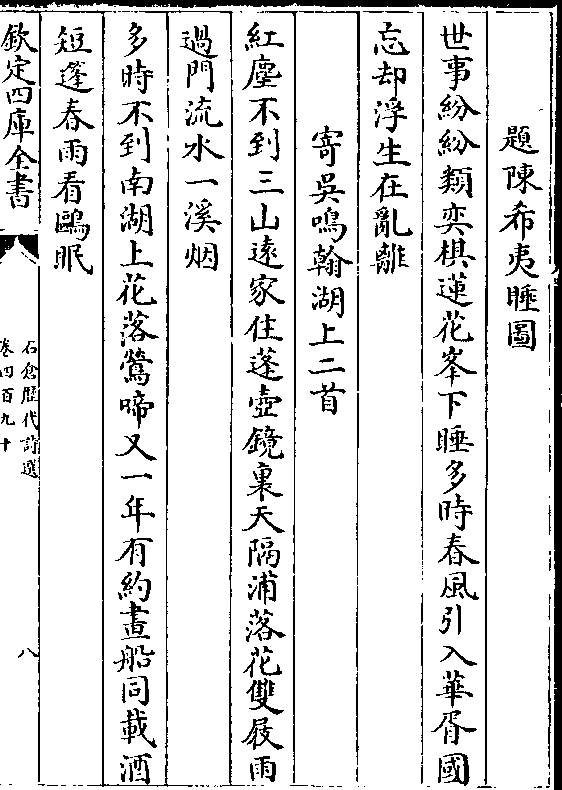 題陳希夷睡圖
世事紛紛類奕棋蓮花峯下睡多時春風引入華胥國
忘却浮生在亂離
寄吳鳴翰湖上二首
紅塵不到三山遠家住蓬壺鏡裏天隔浦落花雙屐雨
過門流水一溪烟
多時不到南湖上花落鶯啼又一年有約畫船同載酒
短篷春雨看鷗眠
欽定四庫全書
石倉歷代詩選
卷四百九十
八